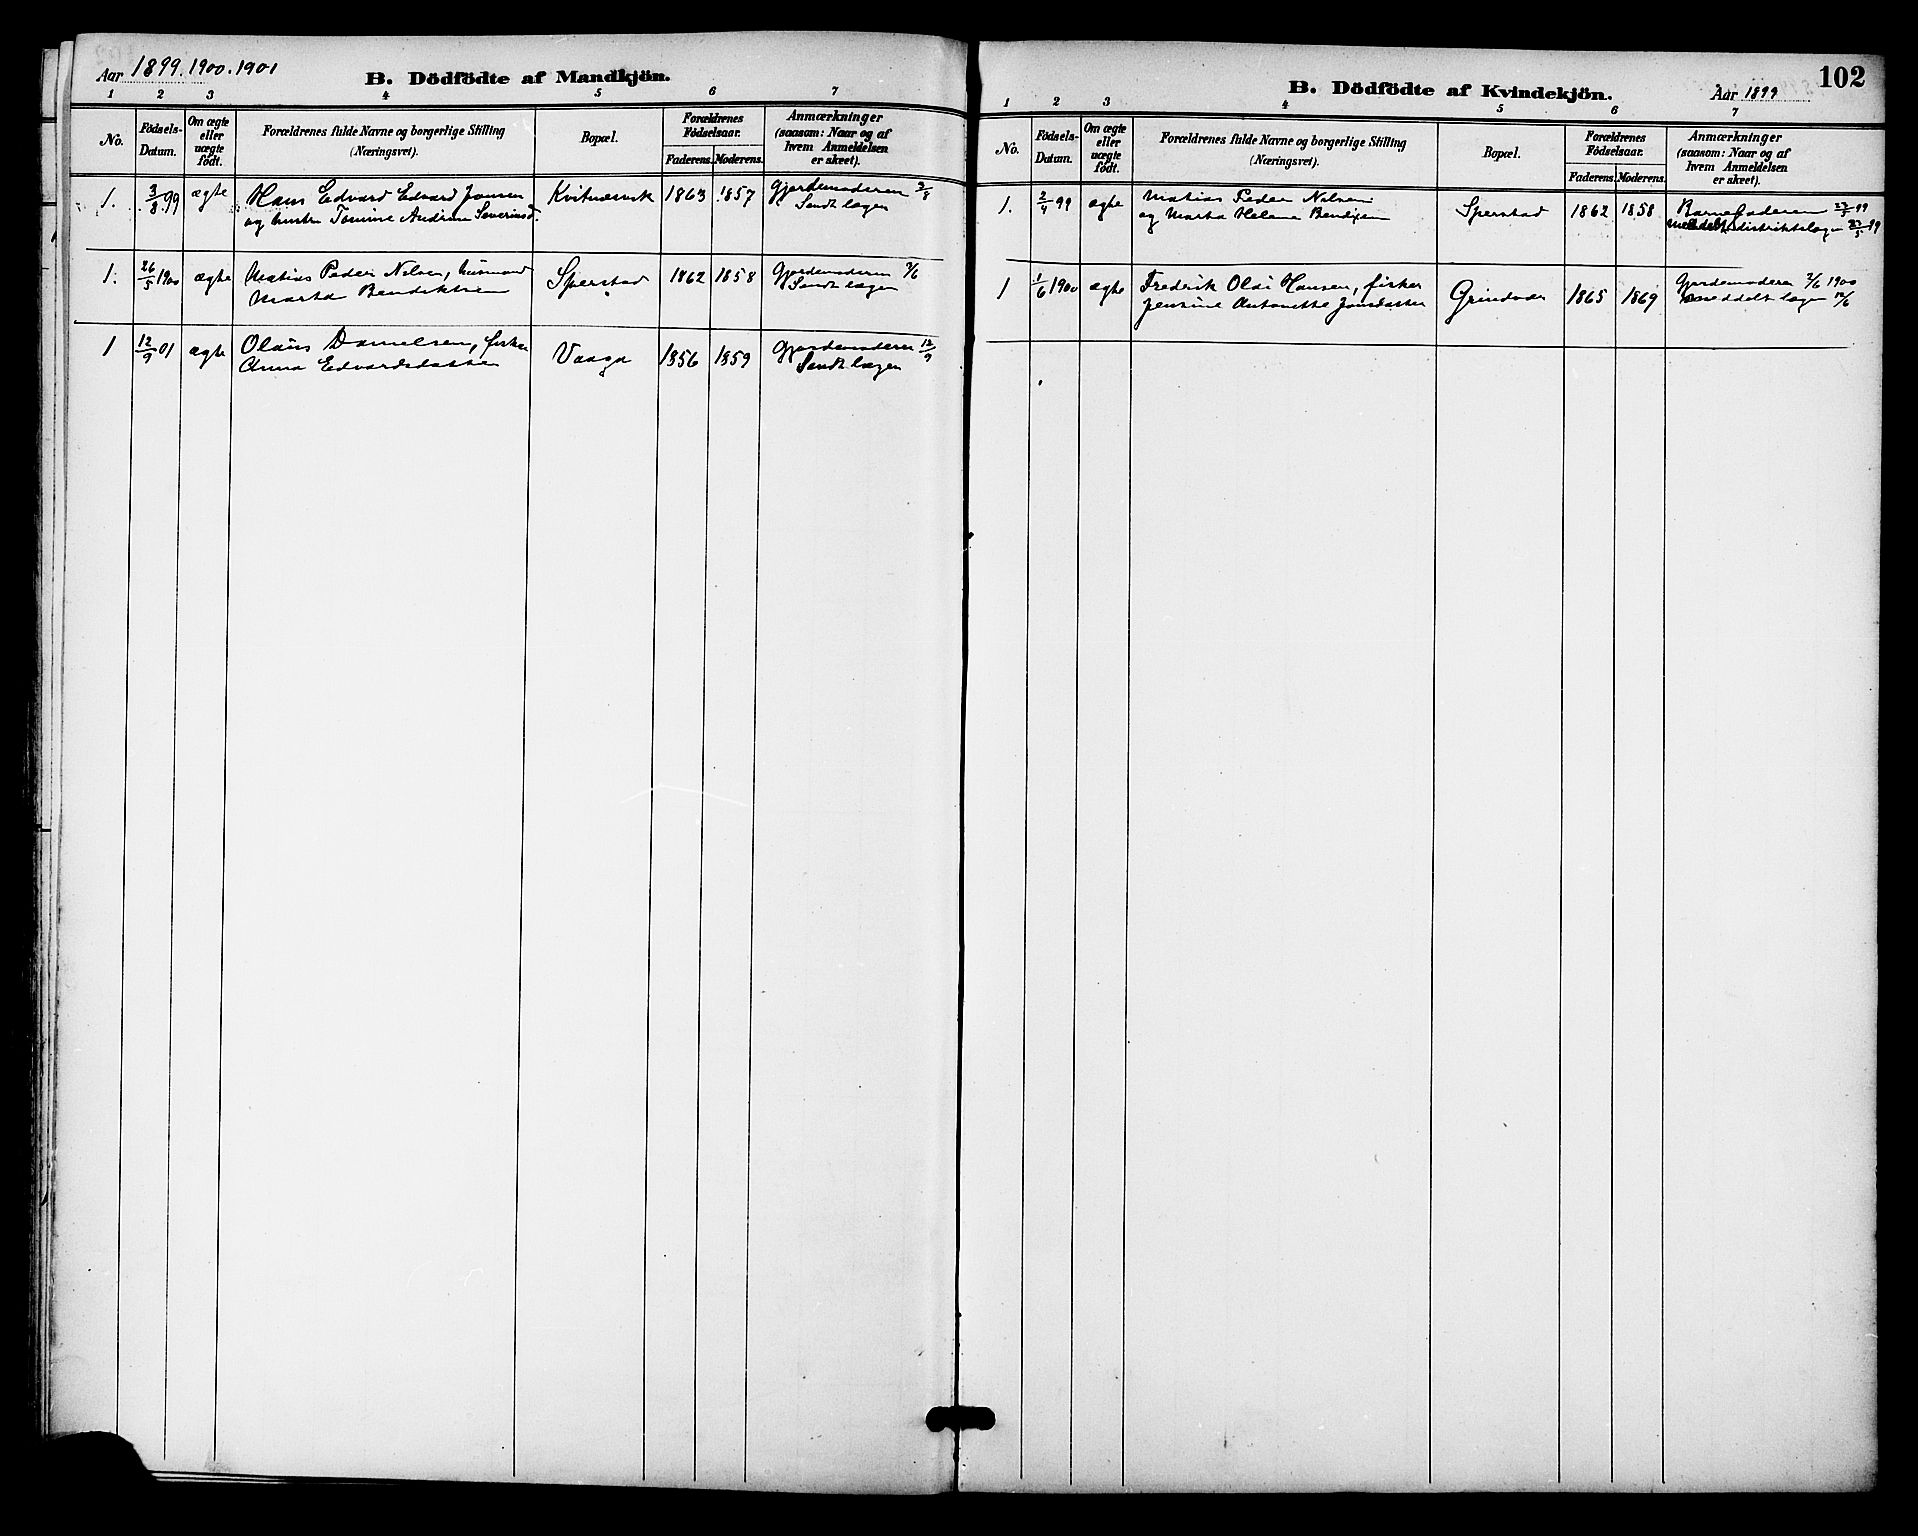 Aar 1899. 1900. 1901
B. Dödfödte af Mandkjön.
1 2 3 4 5 6 7
No. Födsels-Datum. Om ægte eller uægte födt. Forældrenes fulde Navne og borgerlige Stilling (Næringsvei). Bopæl. Forældrenes Födselsaar. Faderens. Moderens. Anmærkninger (saasom: Naar og af hvem Anmeldelsen er skeet).
1. 3/8 99 ægte Hans Edvard Edvard Jensen Kvitnesvik 1863 1857 Gjordemoderen 3/8
og hustr Tomine Andrine Severinsd. Sendt lægen
1. 26/5 1900 ægte Matias Peder Nilsen, husmand Sperstad 1862 1858 Gjordemoderen 7/6
Marta Bendiktsen Sendt lægen
1 12/9 01 ægte Olaus Danielsen, fisker Vaage 1856 1859 Gjordemoderen 12/9
Anna Edvardsdatter Sendt lægen
102
B. Dödfödte af Kvindekjön.
Aar 1899
1 2 3 4 5 6 7
No. Födsels-Datum. Om ægte eller uægte födt. Forældrenes fulde Navne og borgerlige Stilling (Næringsvei). Bopæl. Forældrenes Födselsaar. Faderens. Moderens. Anmærkninger (saasom: Naar og af hvem Anmeldelsen er skeet).
1. 2/4 99 ægte Matias Peder Nilsen Sperstad 1862 1858 Barnefaderen 27/5 99
og Marta Helena Bendixen meddelt distriktslægen 27/5 99
1 1/6 1900 ægte Fredrik Olai Hansen, fisker Grindvde 1865 1869 Gjordemoderen 7/6 1900
Jensine Antonette Jonsdatter meddelt lægen 12/6